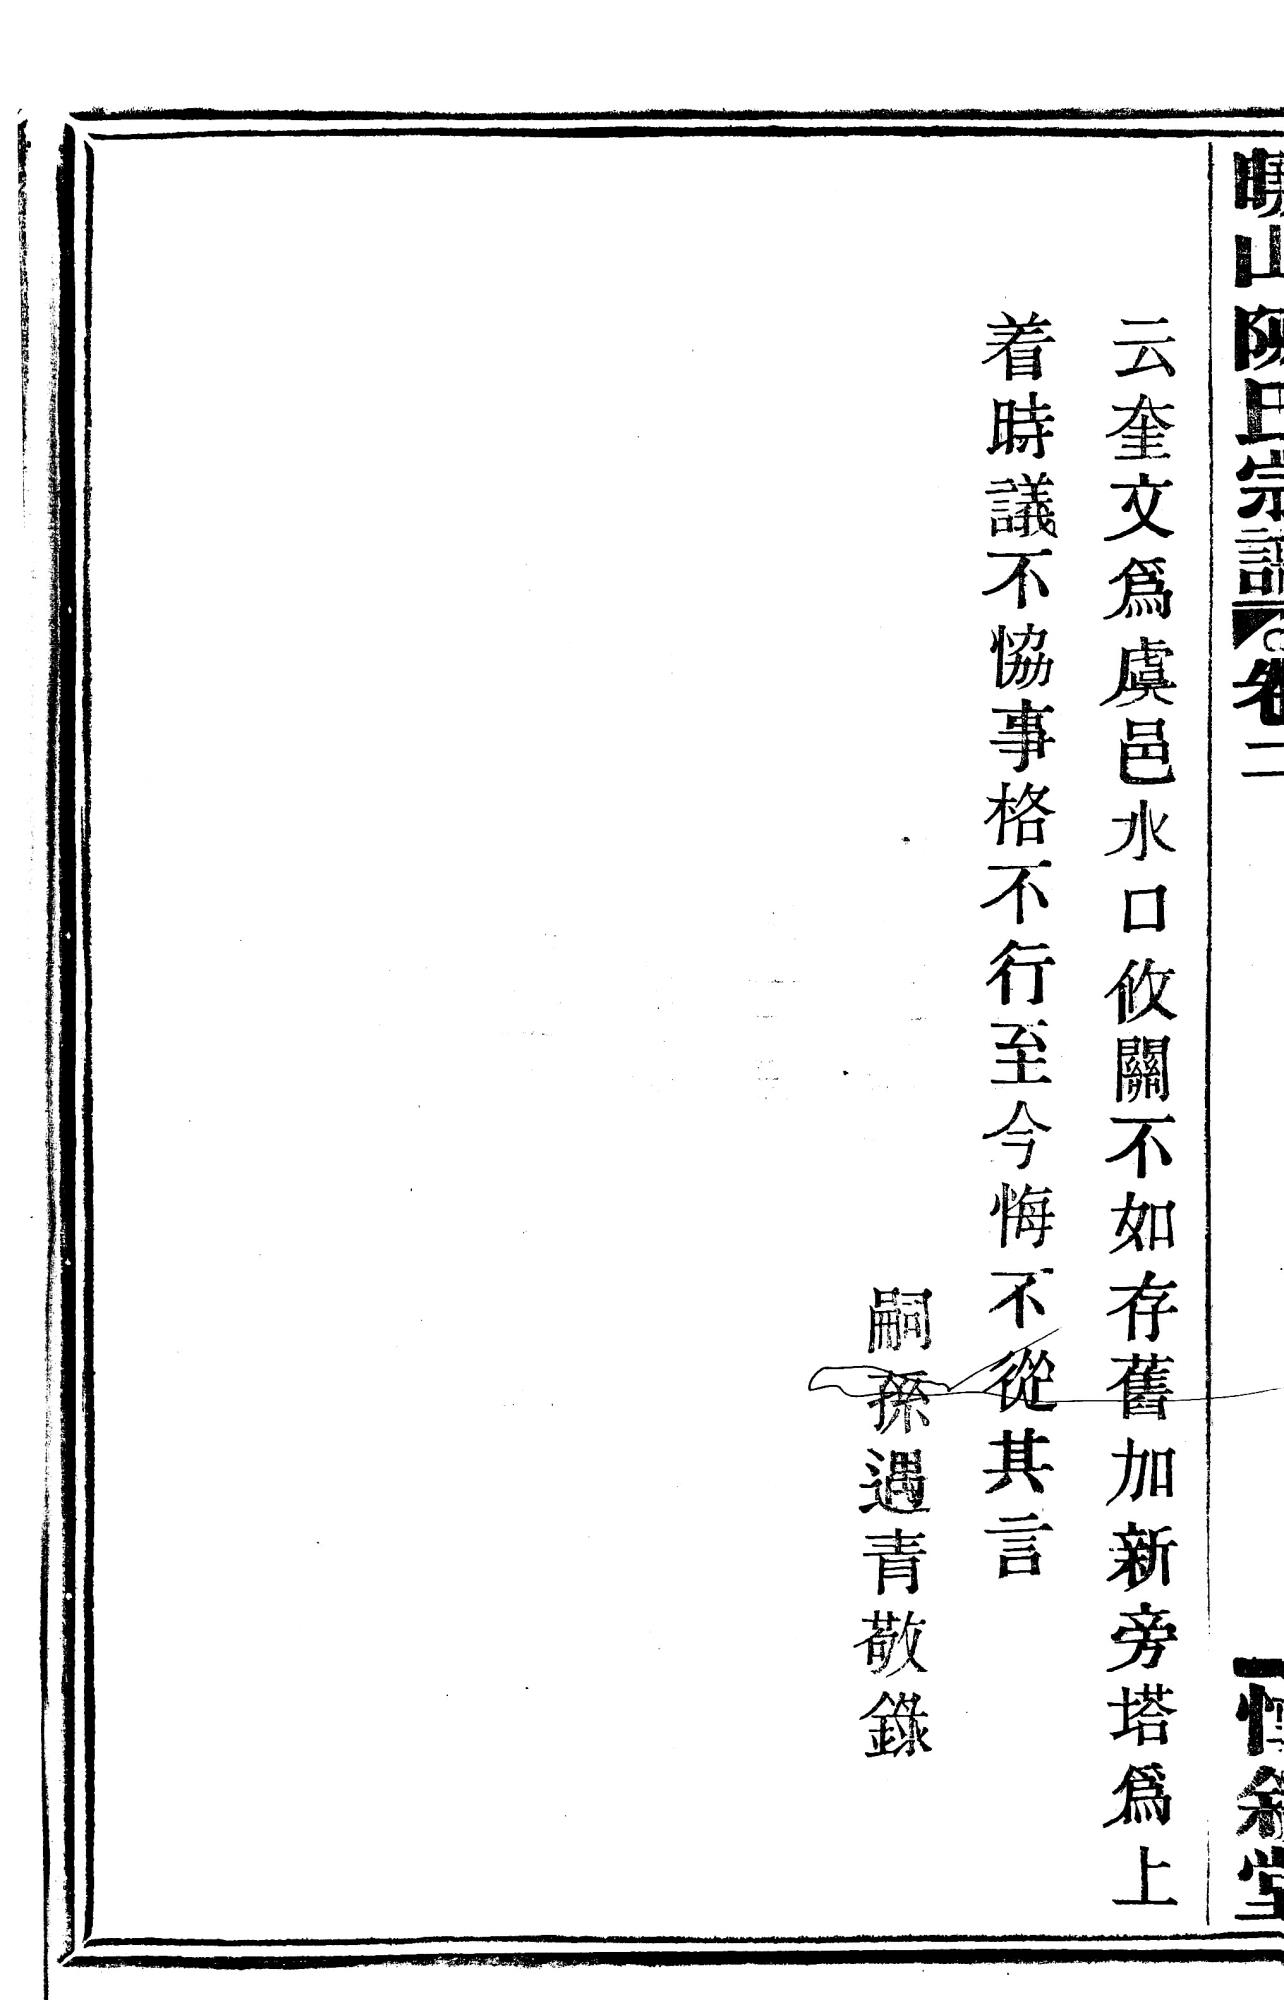 山陳氏宗譜 卷二 敘堂
云奎文爲虞邑水口攸關不如存舊加新旁塔爲上
着時議不恊事格不行至今悔不從其言
嗣孫遇青敬錄